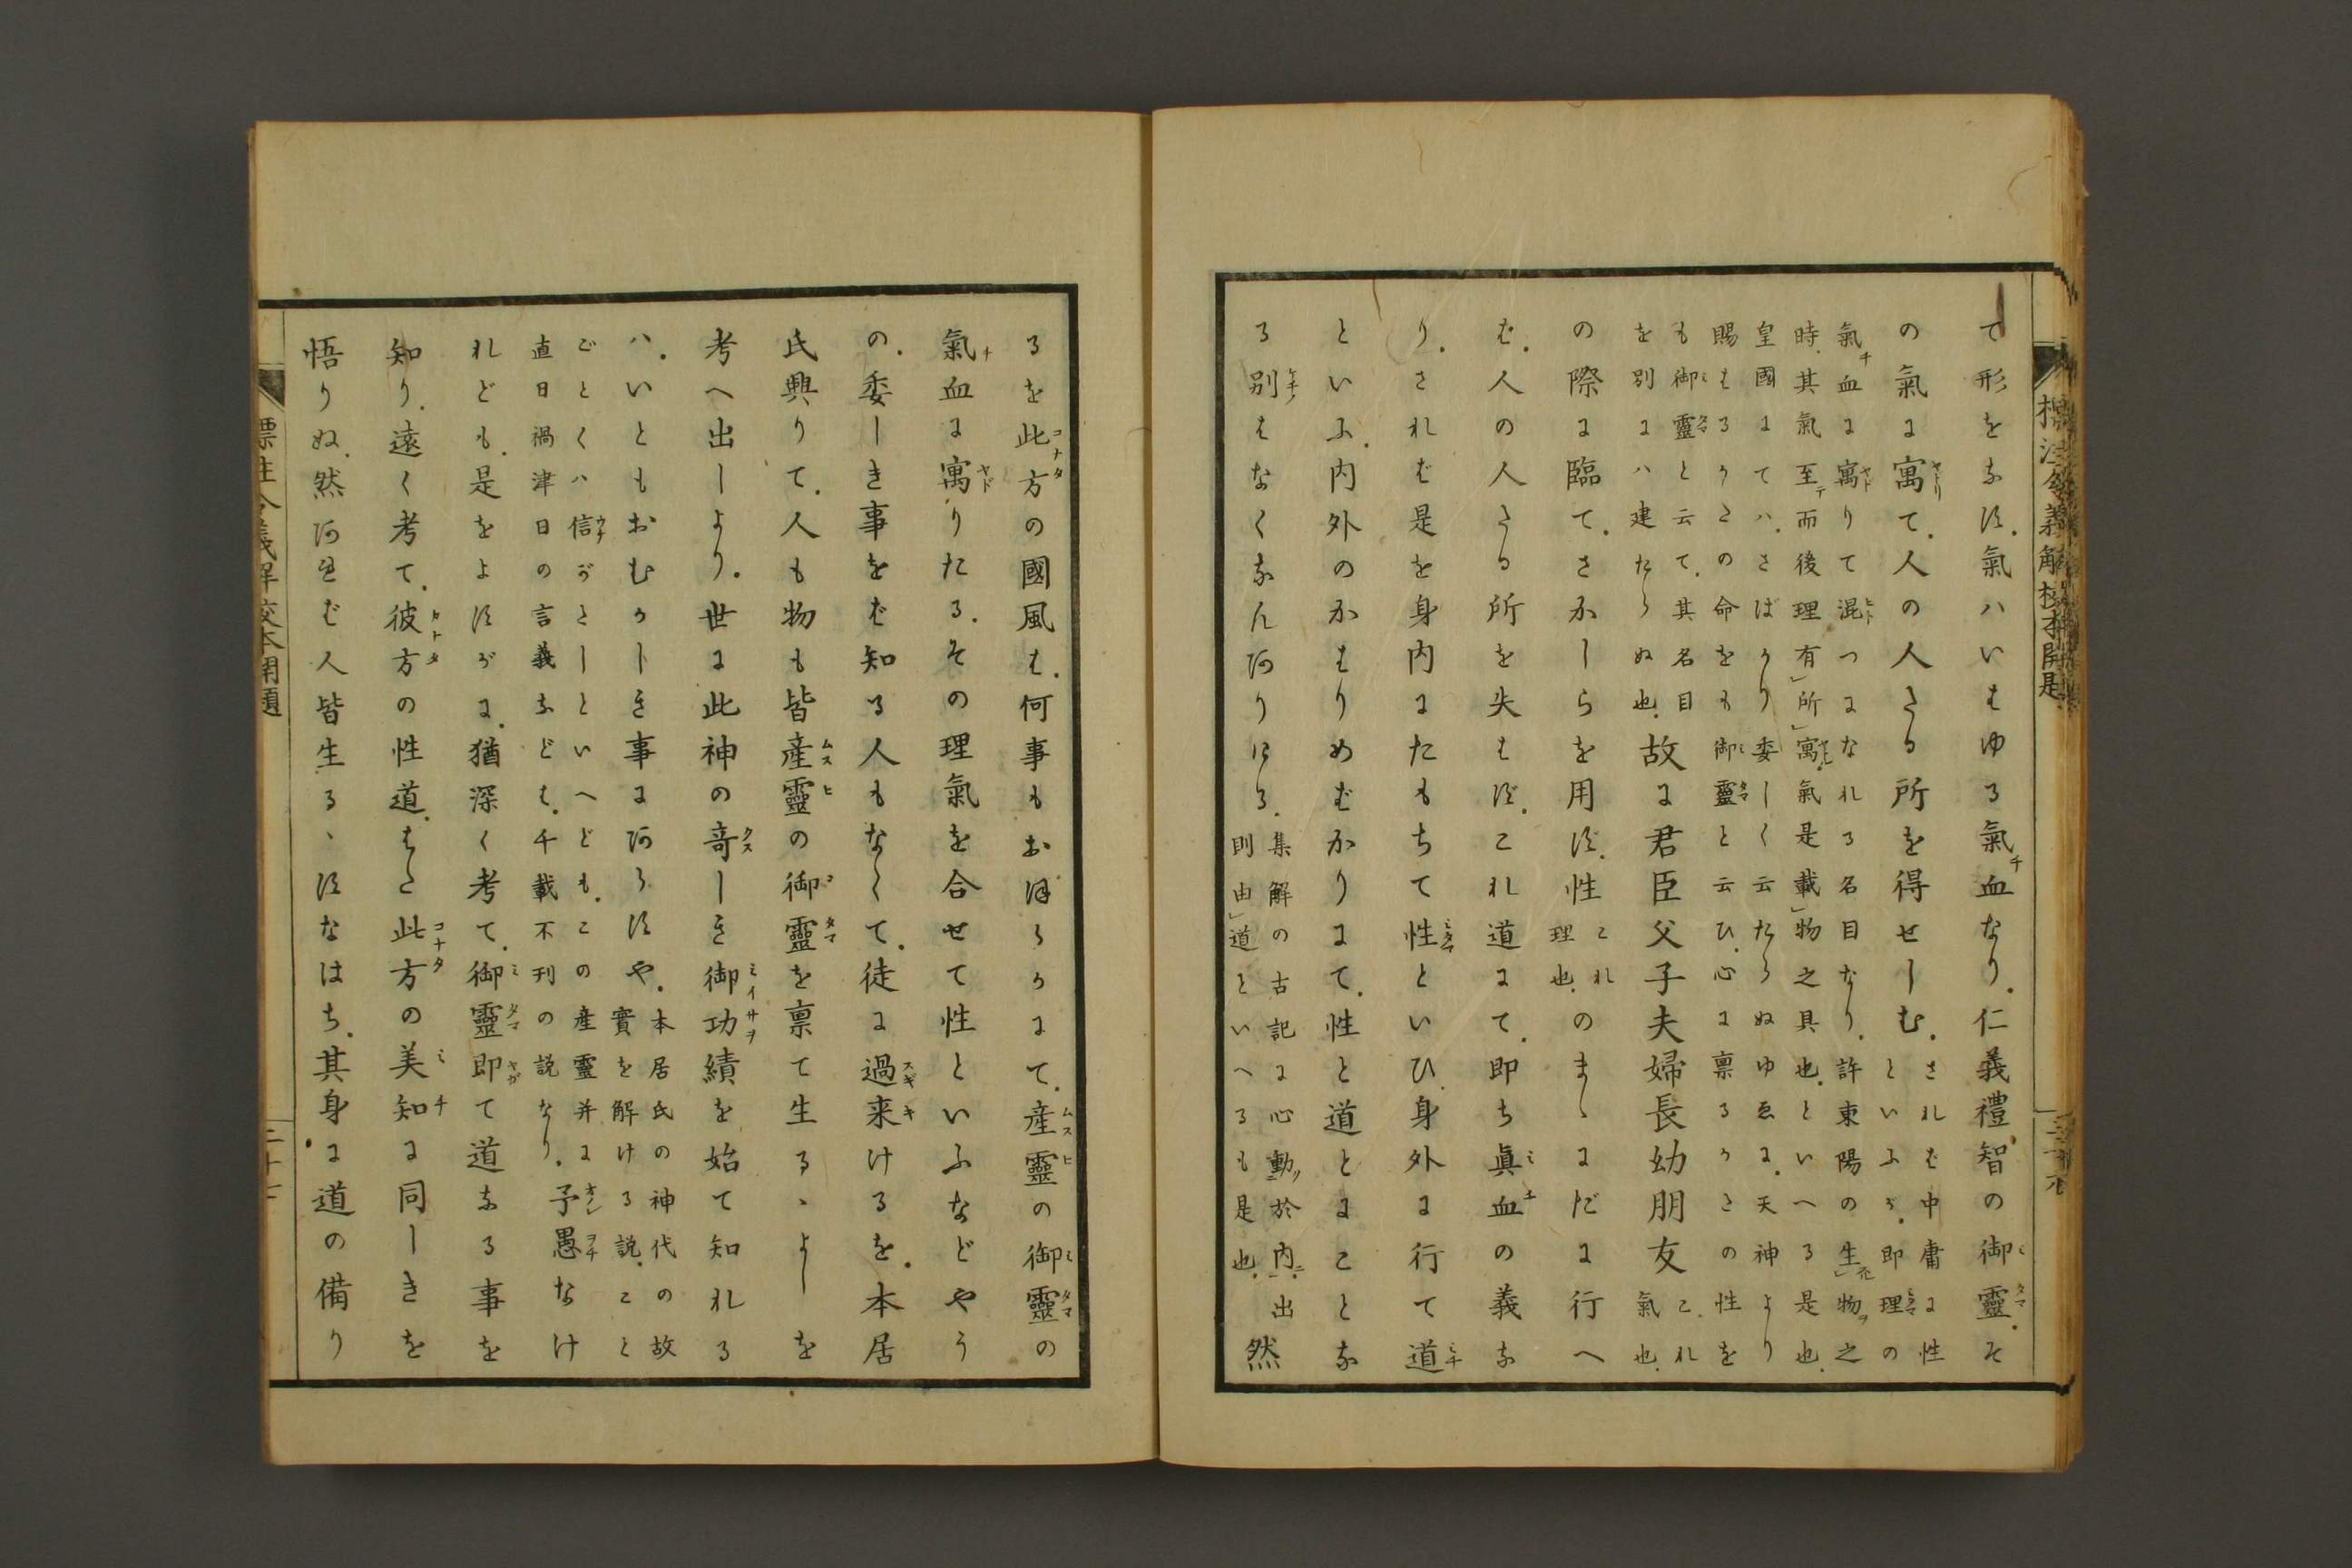 て形をなす。氣ハいはゆる氣血なり。仁義禮智の御靈。そ
の氣に寓て。人の人たる所を得せしむ。
されば中庸に性
といふが。即理の
氣血に寓りて混つになれる名目なり。許東陽の生物之
時。其氣至而後理有所寓。氣是載物之具也。といへる是也。
皇國にてハ。さばかり委しく云たらぬゆゑに。天神より
賜はるうたの命をも御靈と云ひ。心に禀るうたの性を
も御靈と云て。其名目
を別にハ建たらぬ也。
故に君臣父子夫婦長幼朋友
これ
氣也。
の際に臨て。さかしらを用ず。性
これ
理也。
のまゝにだに行へ
ば。人の人たる所を失はず。これ道にて。即ち眞血の義な
り。されば是を身内にたもちて性といひ。身外に行て道
といふ。内外のかはりめばかりにて。性と道とはことな
る別はなくなん有りける。
集解の古記に心動於内。出
則由道といへるも是也。
然
るを此方の國風は。何事もおほらかにて。産靈の御靈の
氣血に寓りたる。その理氣を合せて性といふなどやう
の。委しき事をば知る人もなくて。徒に過来けるを。本居
氏興りて。人も物も皆産靈の御靈を禀て生るゝよしを
考へ出しより。世に此神の竒しき御功績を始て知れる
ハ。いともおむかしき事にあらずや。
本居氏の神代の故
實を解ける説。こと
ごとくハ信がたしといへども。この産靈并に
直日禍津日の言義などは。千載不刊の説なり。
予愚なけ
れども。是をよすがに。猶深く考て。御靈即て道なる事を
知り。遠く考て。彼方の性道。はた此方の美知に同しきを
悟りぬ。然あれば人皆生るゝすなはち。其身に道の備り
標注令義解校本開題
二十七